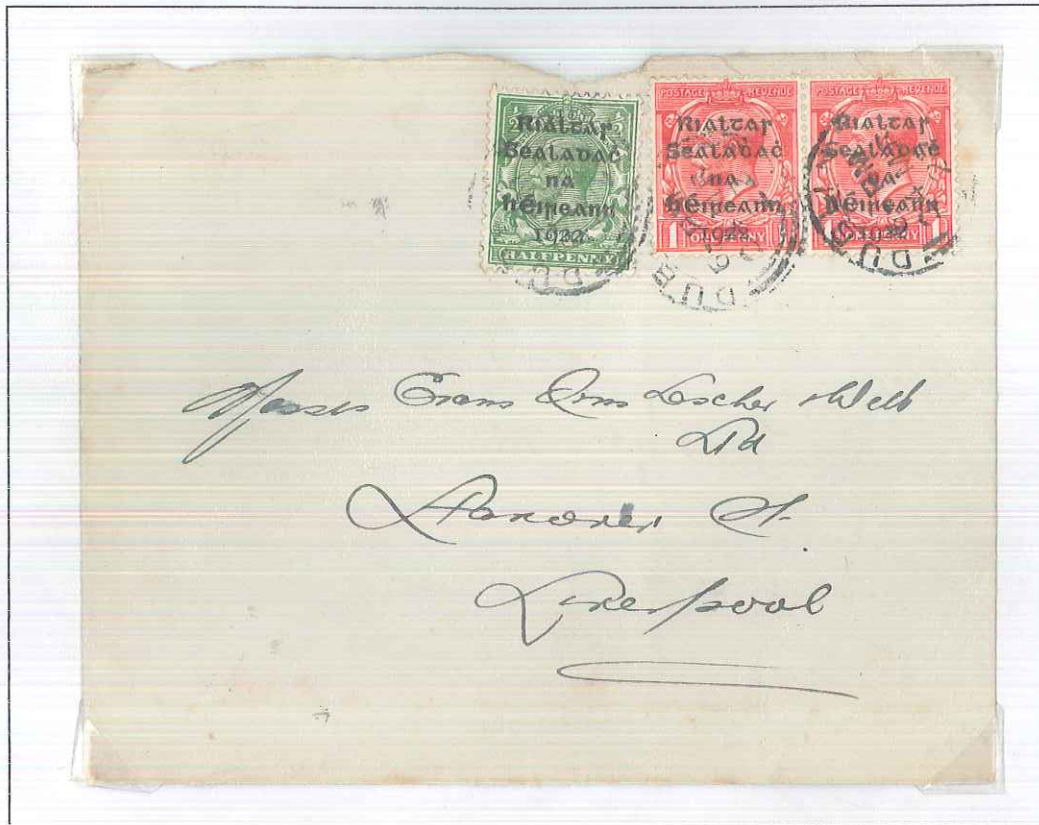 Rialtas Sealadac na hÉireann 1922
HALFPENNY
POSTAGE REVENUE
Rialtas Sealadac na hÉireann 1922
1 ONE PENNY
POSTAGE REVENUE
Rialtas Sealadac na hÉireann 1922
1 ONE PENNY 1
DUB
Messrs Evans Sons Lescher & Webb
Ltd
Hanover St.
Liverpool